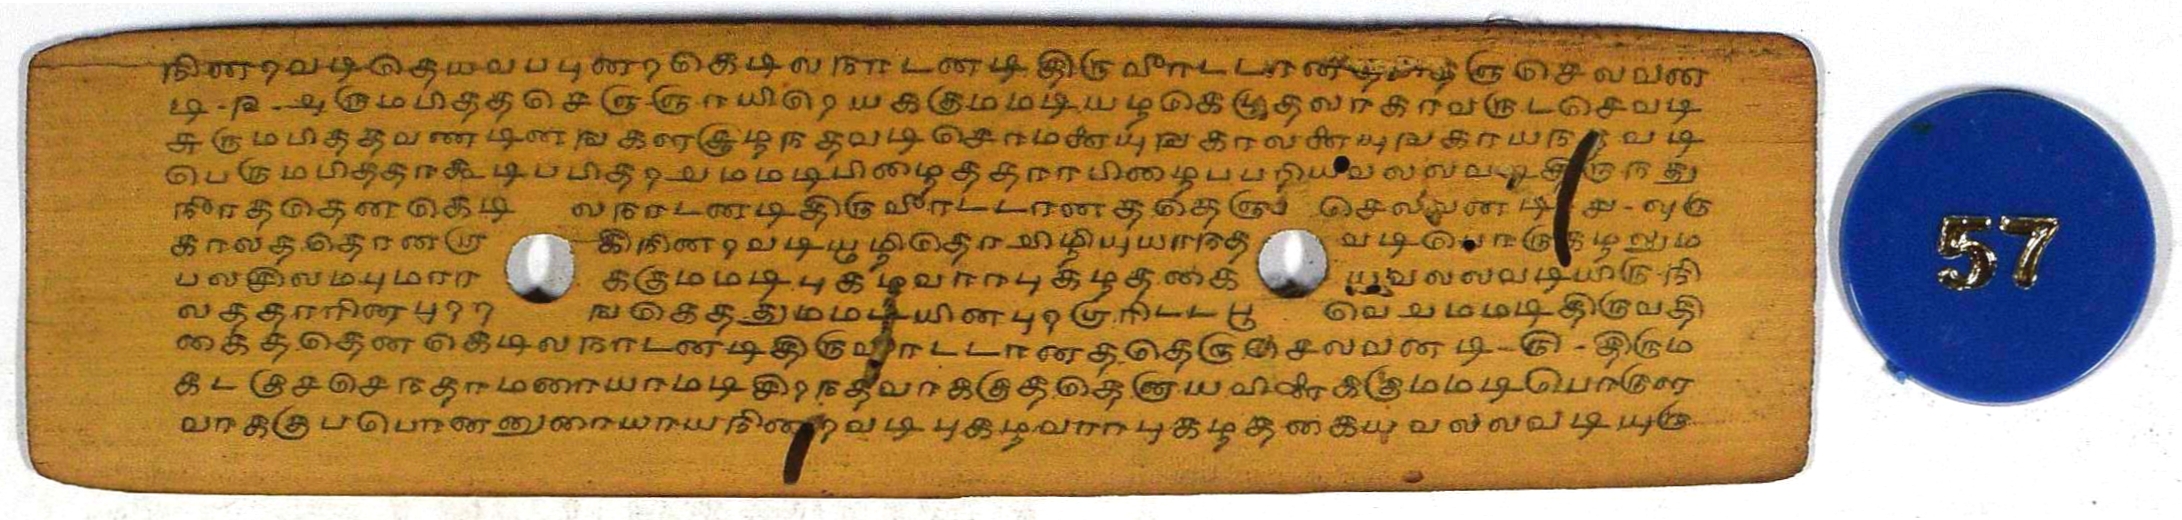 நினறவடிதெயவபபுனறகெடிலநாடனடிதிருவீரட்டானததெஞசெலவன
டி-௩-அருமபிததசெஞஞாயிறெயககுமமடியழகெழுதலாகாவருடசெவடி
சுருமபிததவணடினஙகளசூழநதவடிசொமனையுஙகாலனையுஙகாயநதவடி
பெருமபிததரகூடிபபிதறறுமமடிபிழைததாரபிழைபபறியவலலவடிதிருநது
நீரததெனகெடி லநாடனடிதிருவீரட்டானததெஞ செலவனடி-௪-ஒரு
காலததொனறா கிநினறவடியூழிதொறூழியுயரநத வடிபொருகழலும
பலசிலமபுமார ககுமமடிபுகழவாரபுகழதகை யவலலவடியிருநி
லததாரினபுறற ஙகெததுமமடியினபுறறாரிடடபூ வெறுமமடிதிருவதி
கைததெனகெடிலநாடனடிதிருவீரட்டானததெஞசெலவனடி-௫-திரும
கடகுசசெநதாமரையாமடிசிறநதவரககுததெனாயவிளைககுமமடிபொருள
வரககுபபொனனுரையாயநினறவடிபுகழவாரபுகழதகையவலலவடியுரு
57